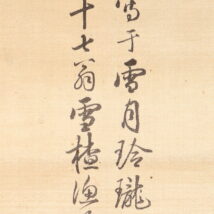 寫于雪月玲瓏
十七翁雪樵漁